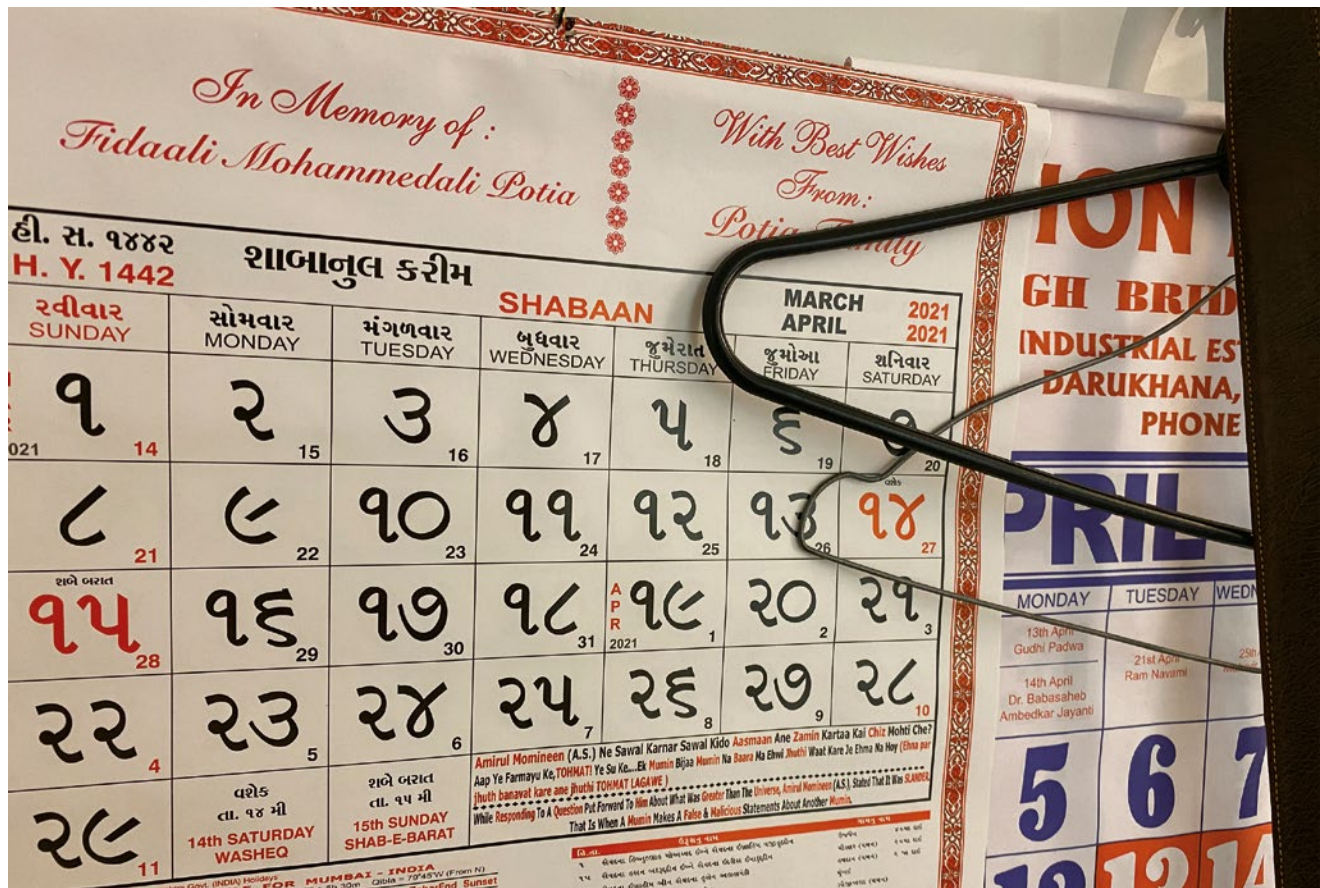 In Memory of :
Fidaali Mohammedali Potia
With Best Wishes
From:
Potia Family
હી. સ. ૧૪૪૨
H. Y. 1442
શાબાનુલ કરીમ
SHABAAN
MARCH 2021
APRIL 2021
રવીવાર સોમવાર મંગળવાર બુધવાર જુમેરાત જુમોઆ શનિવાર
SUNDAY MONDAY TUESDAY WEDNESDAY THURSDAY FRIDAY SATURDAY
૧ ૨ ૩ ૪ ૫ ૬ ૭
021 14 15 16 17 18 19 20
વશેક
૮ ૯ ૧૦ ૧૧ ૧૨ ૧૩ ૧૪
21 22 23 24 25 26 27
શબે બરાત
૧૫ ૧૬ ૧૭ ૧૮ APR ૧૯ ૨૦ ૨૧
28 29 30 31 2021 1 2 3
૨૨ ૨૩ ૨૪ ૨૫ ૨૬ ૨૭ ૨૮
4 5 6 7 8 9 10
૨૯
11
વશેક
તા. ૧૪ મી
14th SATURDAY
WASHEQ
શબે બરાત
તા. ૧૫ મી
15th SUNDAY
SHAB-E-BARAT
Amirul Momineen (A.S.) Ne Sawal Karnar Sawal Kido Aasmaan Ane Zamin Kartaa Kai Chiz Mohti Che?
Aap Ye Farmayu Ke, TOHMAT! Ye Su Ke....Ek Mumin Bijaa Mumin Na Baara Ma Ehwi Jhuthi Waat Kare Je Ehma Na Hoy (Ehna par
jhuth banavat kare ane jhuthi TOHMAT LAGAWE )
While Responding To A Question Put Forward To Him About What Was Greater Than The Universe, Amirul Momineen (A.S.), Stated That It Was SLANDER,
That Is When A Mumin Makes A False & Malicious Statements About Another Mumin.
Govt. (INDIA) Holidays
FOR MUMBAI - INDIA
5h 30m Qibla = 70°45'W (From N)
End Sunset
ION
GH BRID
INDUSTRIAL ES
DARUKHANA,
PHONE
PRIL
MONDAY TUESDAY WEDN
13th April
Gudhi Padwa
14th April
Dr. Babasaheb
Ambedkar Jayanti
21st April
Ram Navami
25th
5 6 7
12 13 14